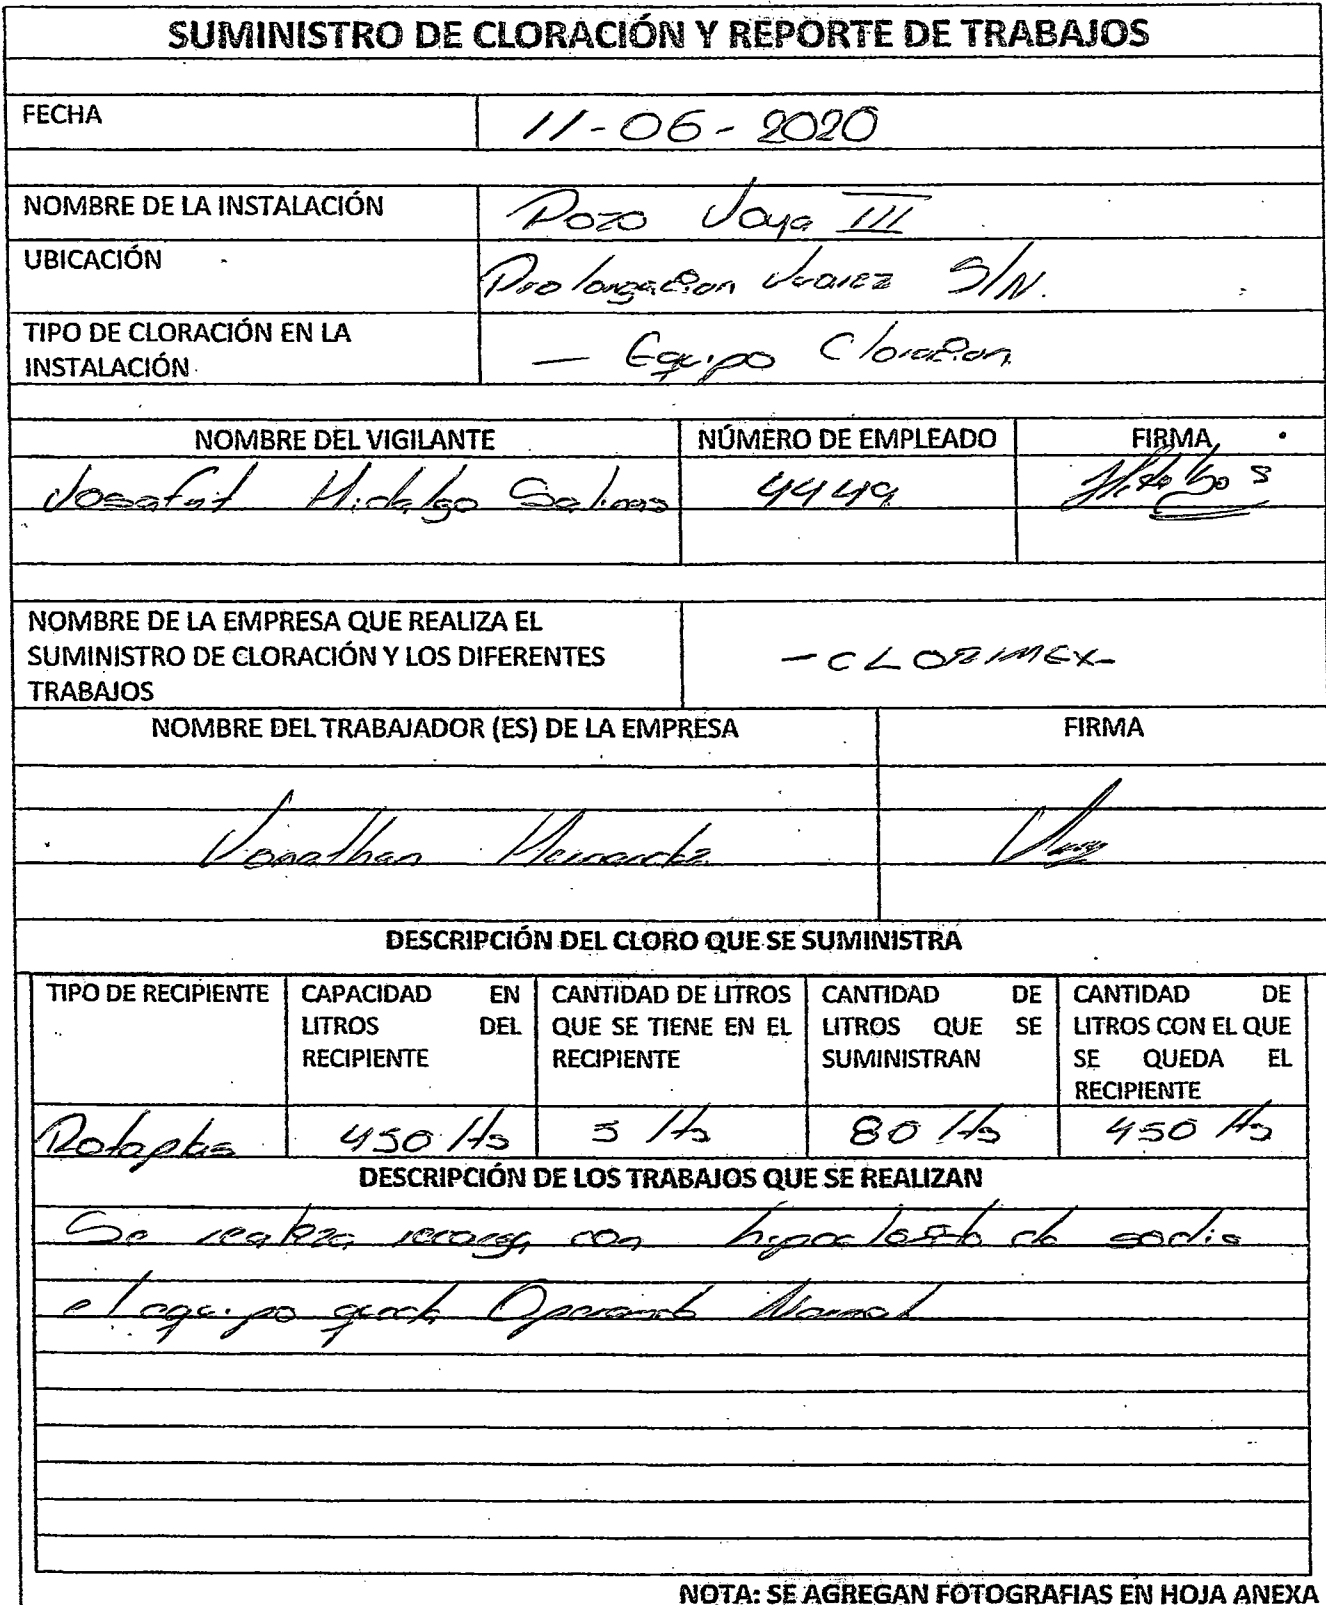 SUMINISTRO DE CLORACIÓN Y REPORTE DE TRABAJOS
FECHA 11-06-2020
NOMBRE DE LA INSTALACIÓN Pozo Joya III
UBICACIÓN Prolongacion Juarez S/N.
TIPO DE CLORACIÓN EN LA
INSTALACIÓN — Equipo Cloracion
NOMBRE DEL VIGILANTE NÚMERO DE EMPLEADO FIRMA
Josafat Hidalgo Salinas 4449 Hidalgo S
NOMBRE DE LA EMPRESA QUE REALIZA EL
SUMINISTRO DE CLORACIÓN Y LOS DIFERENTES
TRABAJOS
- CLORIMEX-
NOMBRE DEL TRABAJADOR (ES) DE LA EMPRESA FIRMA
Jonathan Hernandez
DESCRIPCIÓN DEL CLORO QUE SE SUMINISTRA
TIPO DE RECIPIENTE
CAPACIDAD EN
LITROS DEL
RECIPIENTE
CANTIDAD DE LITROS
QUE SE TIENE EN EL
RECIPIENTE
CANTIDAD DE
LITROS QUE SE
SUMINISTRAN
CANTIDAD DE
LITROS CON EL QUE
SE QUEDA EL
RECIPIENTE
Rotoplas 450 lts lts 80 lts 450 lts
DESCRIPCIÓN DE LOS TRABAJOS QUE SE REALIZAN
Se realiza recarga con hipoclorito de sodio
el equipo queda Operando Normal
NOTA: SE AGREGAN FOTOGRAFIAS EN HOJA ANEXA